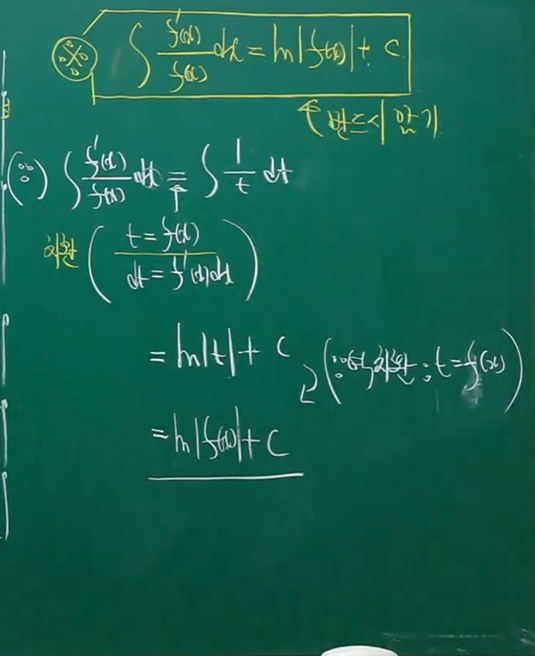 ∫ f'(x)/f(x) dx = ln|f(x)| + C
반드시 암기
(∵) ∫ f'(x)/f(x) dx = ∫ 1/t dt
치환 ( t = f(x)
dt = f'(x)dx )
= ln|t| + C
(∵ 역치환 : t = f(x))
= ln|f(x)| + C